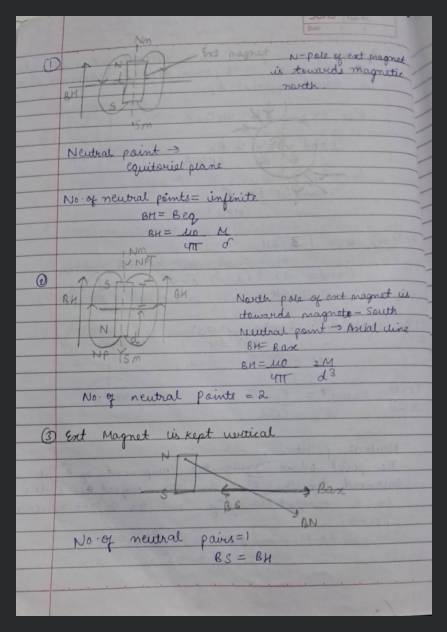 Nm
① Ext magnet
N
BH
S
Sm
N-pole of ext magnet
is towards magnetic
north.
Neutral point →
equitorial plane
No. of neutral points = infinite
BH = Beq
BH = μ0/4π M/d
② Nm
NP
S
BH BH
N
d
NP Sm
North pole of ext magnet is
towards magneto - South
Neutral point → Axial line
BH = Bax
BH = μ0/4π 2M/d³
No. of neutral points = 2
③ Ext Magnet is kept vertical
N
S
BS
Bax
BN
No. of neutral pairs = 1
BS = BH